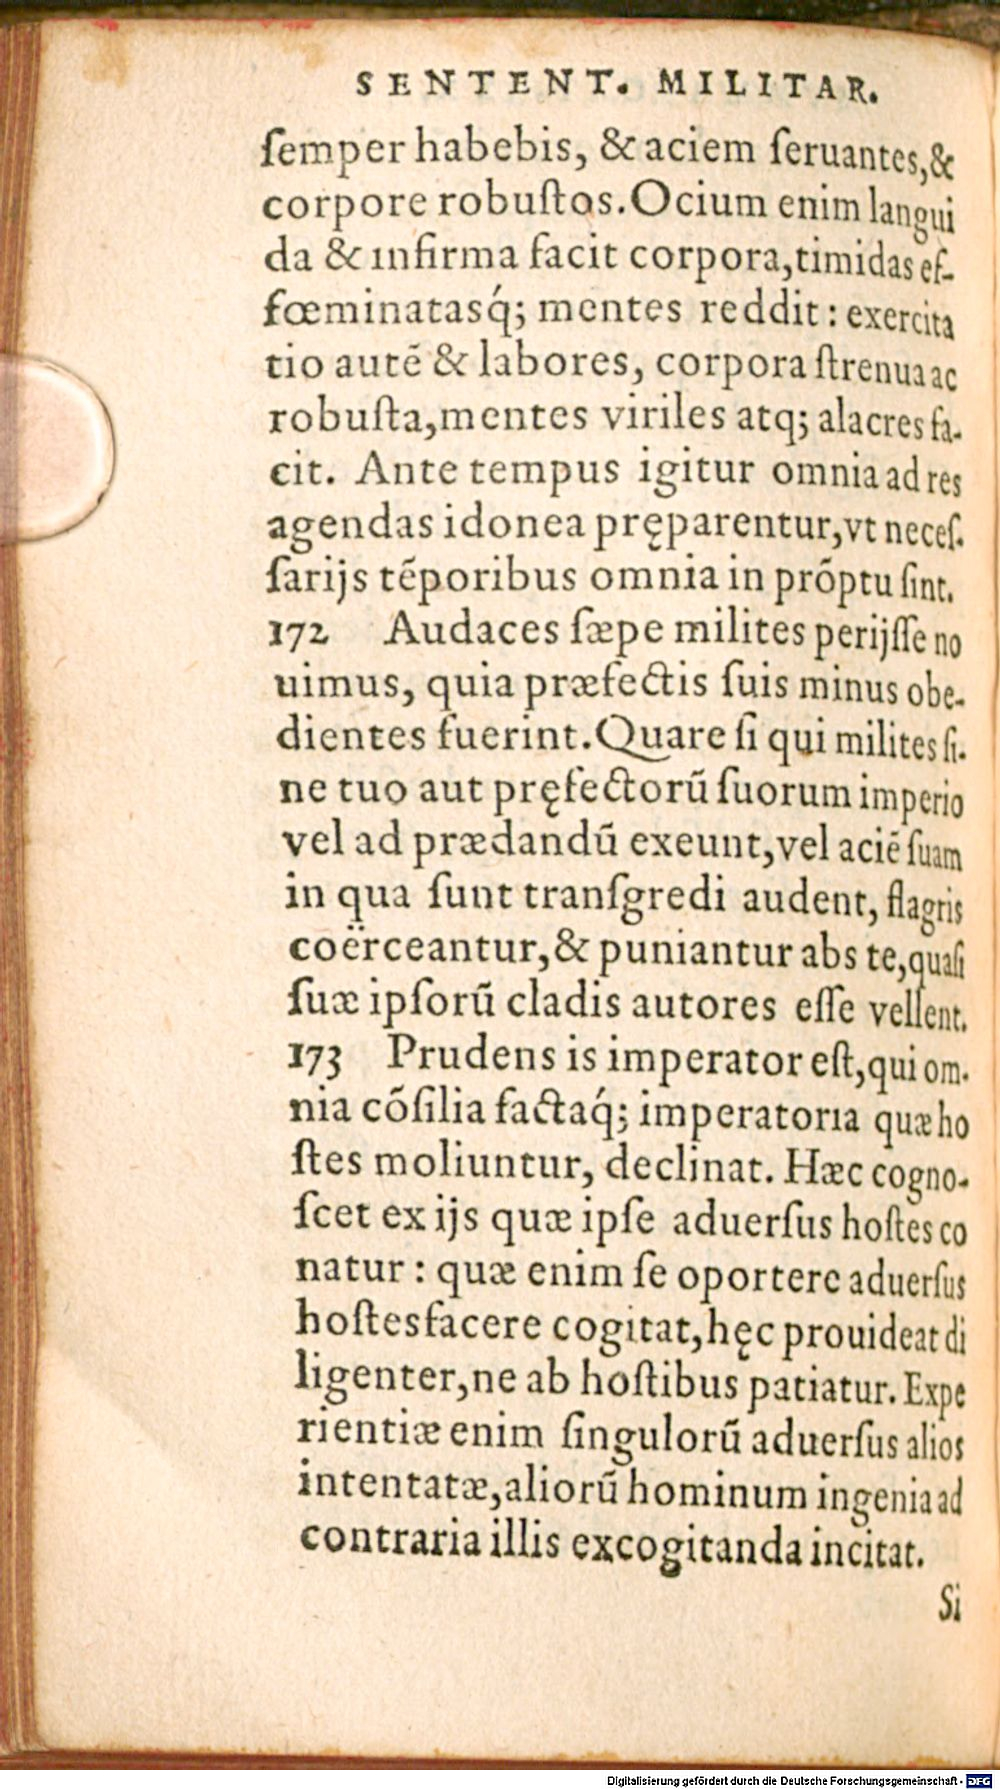 SENTENT. MILITAR.
ſemper habebis, & aciem ſeruantes,&
corpore robuſtos. Ocium enim langui
da & infirma facit corpora, timidas eſ-
fœminatasq́; mentes reddit: exercita
tio autẽ & labores, corpora ſtrenua ac
robuſta, mentes viriles atq; alacres fa-
cit. Ante tempus igitur omnia ad res
agendas idonea pręparentur, vt neceſ-
ſarijs tẽporibus omnia in prõptu ſint.
172 Audaces ſæpe milites perijſſe no
uimus, quia præfectis ſuis minus obe-
dientes fuerint. Quare ſi qui milites ſi-
ne tuo aut pręfectorũ ſuorum imperio
vel ad prædandũ exeunt, vel aciẽ ſuam
in qua ſunt tranſgredi audent, flagris
coërceantur, & puniantur abs te, quaſi
ſuæ ipſorũ cladis autores eſſe vellent.
173 Prudens is imperator eſt, qui om-
nia cõſilia factaq́; imperatoria quæ ho
ſtes moliuntur, declinat. Hæc cogno-
ſcet ex ijs quæ ipſe aduerſus hoſtes co
natur: quæ enim ſe oportere aduerſus
hoſtes facere cogitat, hęc prouideat di
ligenter, ne ab hoſtibus patiatur. Expe
rientiæ enim ſingulorũ aduerſus alios
intentatæ, aliorũ hominum ingenia ad
contraria illis excogitanda incitat.
Si
Digitalisierung gefördert durch die Deutsche Forschungsgemeinschaft - DFG